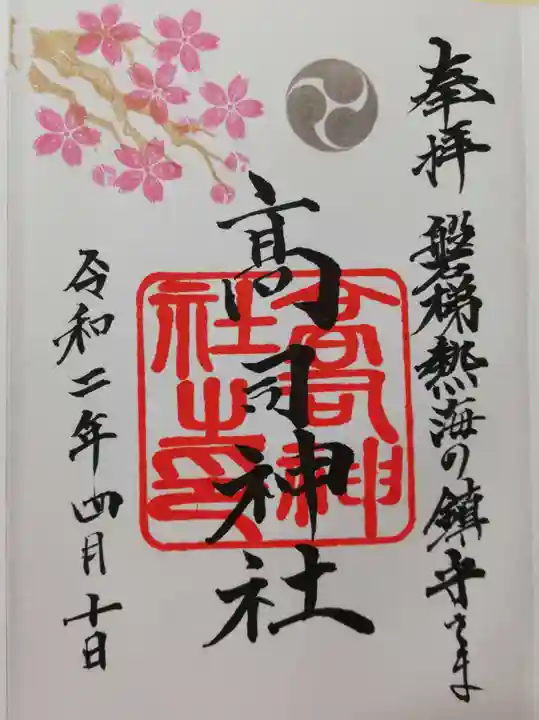 奉拝 磐梯熱海の鎮守さま
髙司神社
髙司神社之印
令和二年四月十日